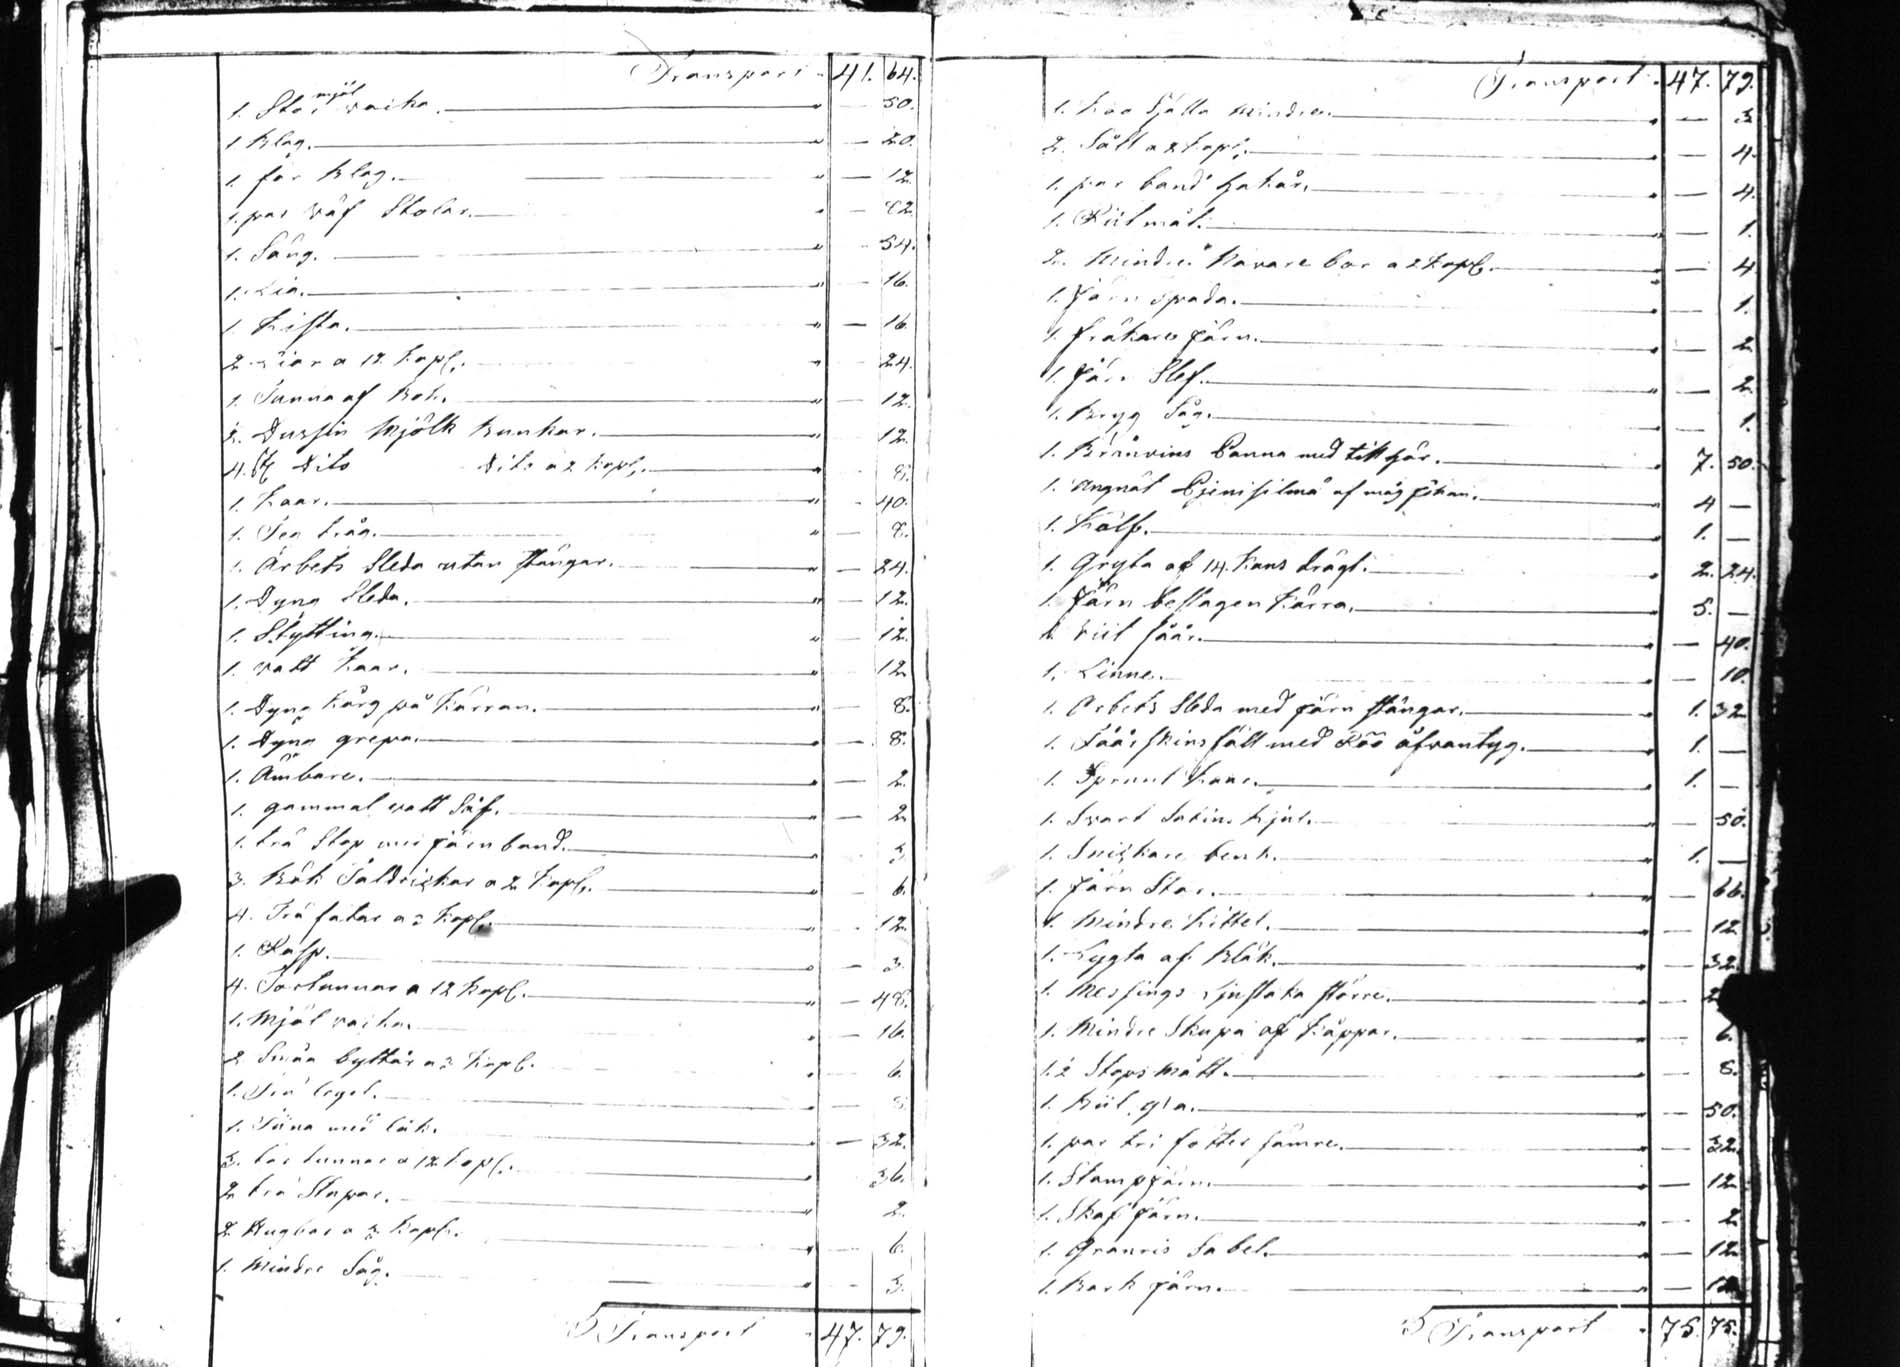 Transport 41. 64.
1. Stor mjöl vacka. — 50.
1 Klag. — 20.
1. för Klag. — 12.
1. par väf Stolar. — 82.
1. Säng. — 54.
1. Lia. — 16.
1. Kista. — 16.
2. Liar a 12 Kopk. — 24.
1. Tunna af — 12.
2. Dussin Mjölk Bunkar. — 12.
4. St Dito Dito a 2 Kopk. — 8.
1. Kaar. — 40.
1. Deg tråg. — 8.
1. Arbets Sleda utan stängar. — 24.
1. Dyng Sleda. — 12.
1. Stytting. — 12.
1. vatt Kaar. — 12
1. Dyng Korg på Kärran. — 8.
1. Dyng grepa. — 8.
1. Ämbare. — 2.
1. gammal vatt Så. — 2
1. trä Stop med järn band. — 3.
3. Bläk Taldrickar a 2 Kopk. — 6.
4. Trä fatar a 3 Kopk. — 12.
1. Rasp. — 3.
4. Tortunnar a 12 Kopk. — 48.
1. Mjöl vacka. — 16.
2 Småa byttår a 3 Kopk. — 6.
1. Trä legel. — 8.
1. Tiina med låk. — 32.
3. tår tunnor a 12 Kopk. — 36.
2. trä Stopar. — 2.
2. a 3 Kopk. — 6.
1. Mindre Såg. — 3.
Transport 47. 79.
Transport 47. 79.
1. Koo Själla mindre. — 3
2. Såll a 2 Kopk. — 4.
1. par band hakar. — 4.
1. mål. — 1.
2. Mindre Navare bor a 2 Kopk. — 4
1. Järn spada. — 1.
1. järn. — 2
1. Järn Slef. — 2.
1. Bryg Såg. — 1.
1. Brånvins Panna med tillhör. 7. 50.
1. Angnät af måg Johan. 4 —
1. Kalf. 1. —
1. Gryta af 14. Kans drägt. 2. 24.
1. Järn beslagen Kärra. 5. —
1. får. — 40.
1. Linne. — 10.
1. Arbets Sleda med järn stängar. 1. 32
1. Fåårskins fäll med Röö åfvantyg. 1. —
1. Sprunt Kaar. 1. —
1. Svart Satins Kjol. — 50.
1. Snickare benk. 1. —
1. Järn Stör. — 66.
1. Mindre Kittel. — 12
1. Lygta af Bläk. — 32.
1. Messings Ljustaka större. — 2
1. Mindre Skupa af Kåppar. — 6.
1. 2 Stops Mått. — 8.
1. — 50.
1. par tri fötter sämre. — 32.
1. Stampjärn. — 12
1. Skaf Järn. — 2
1. Granris Sabel. — 12
1. Bark Järn. — 12
Transport 75. 75.